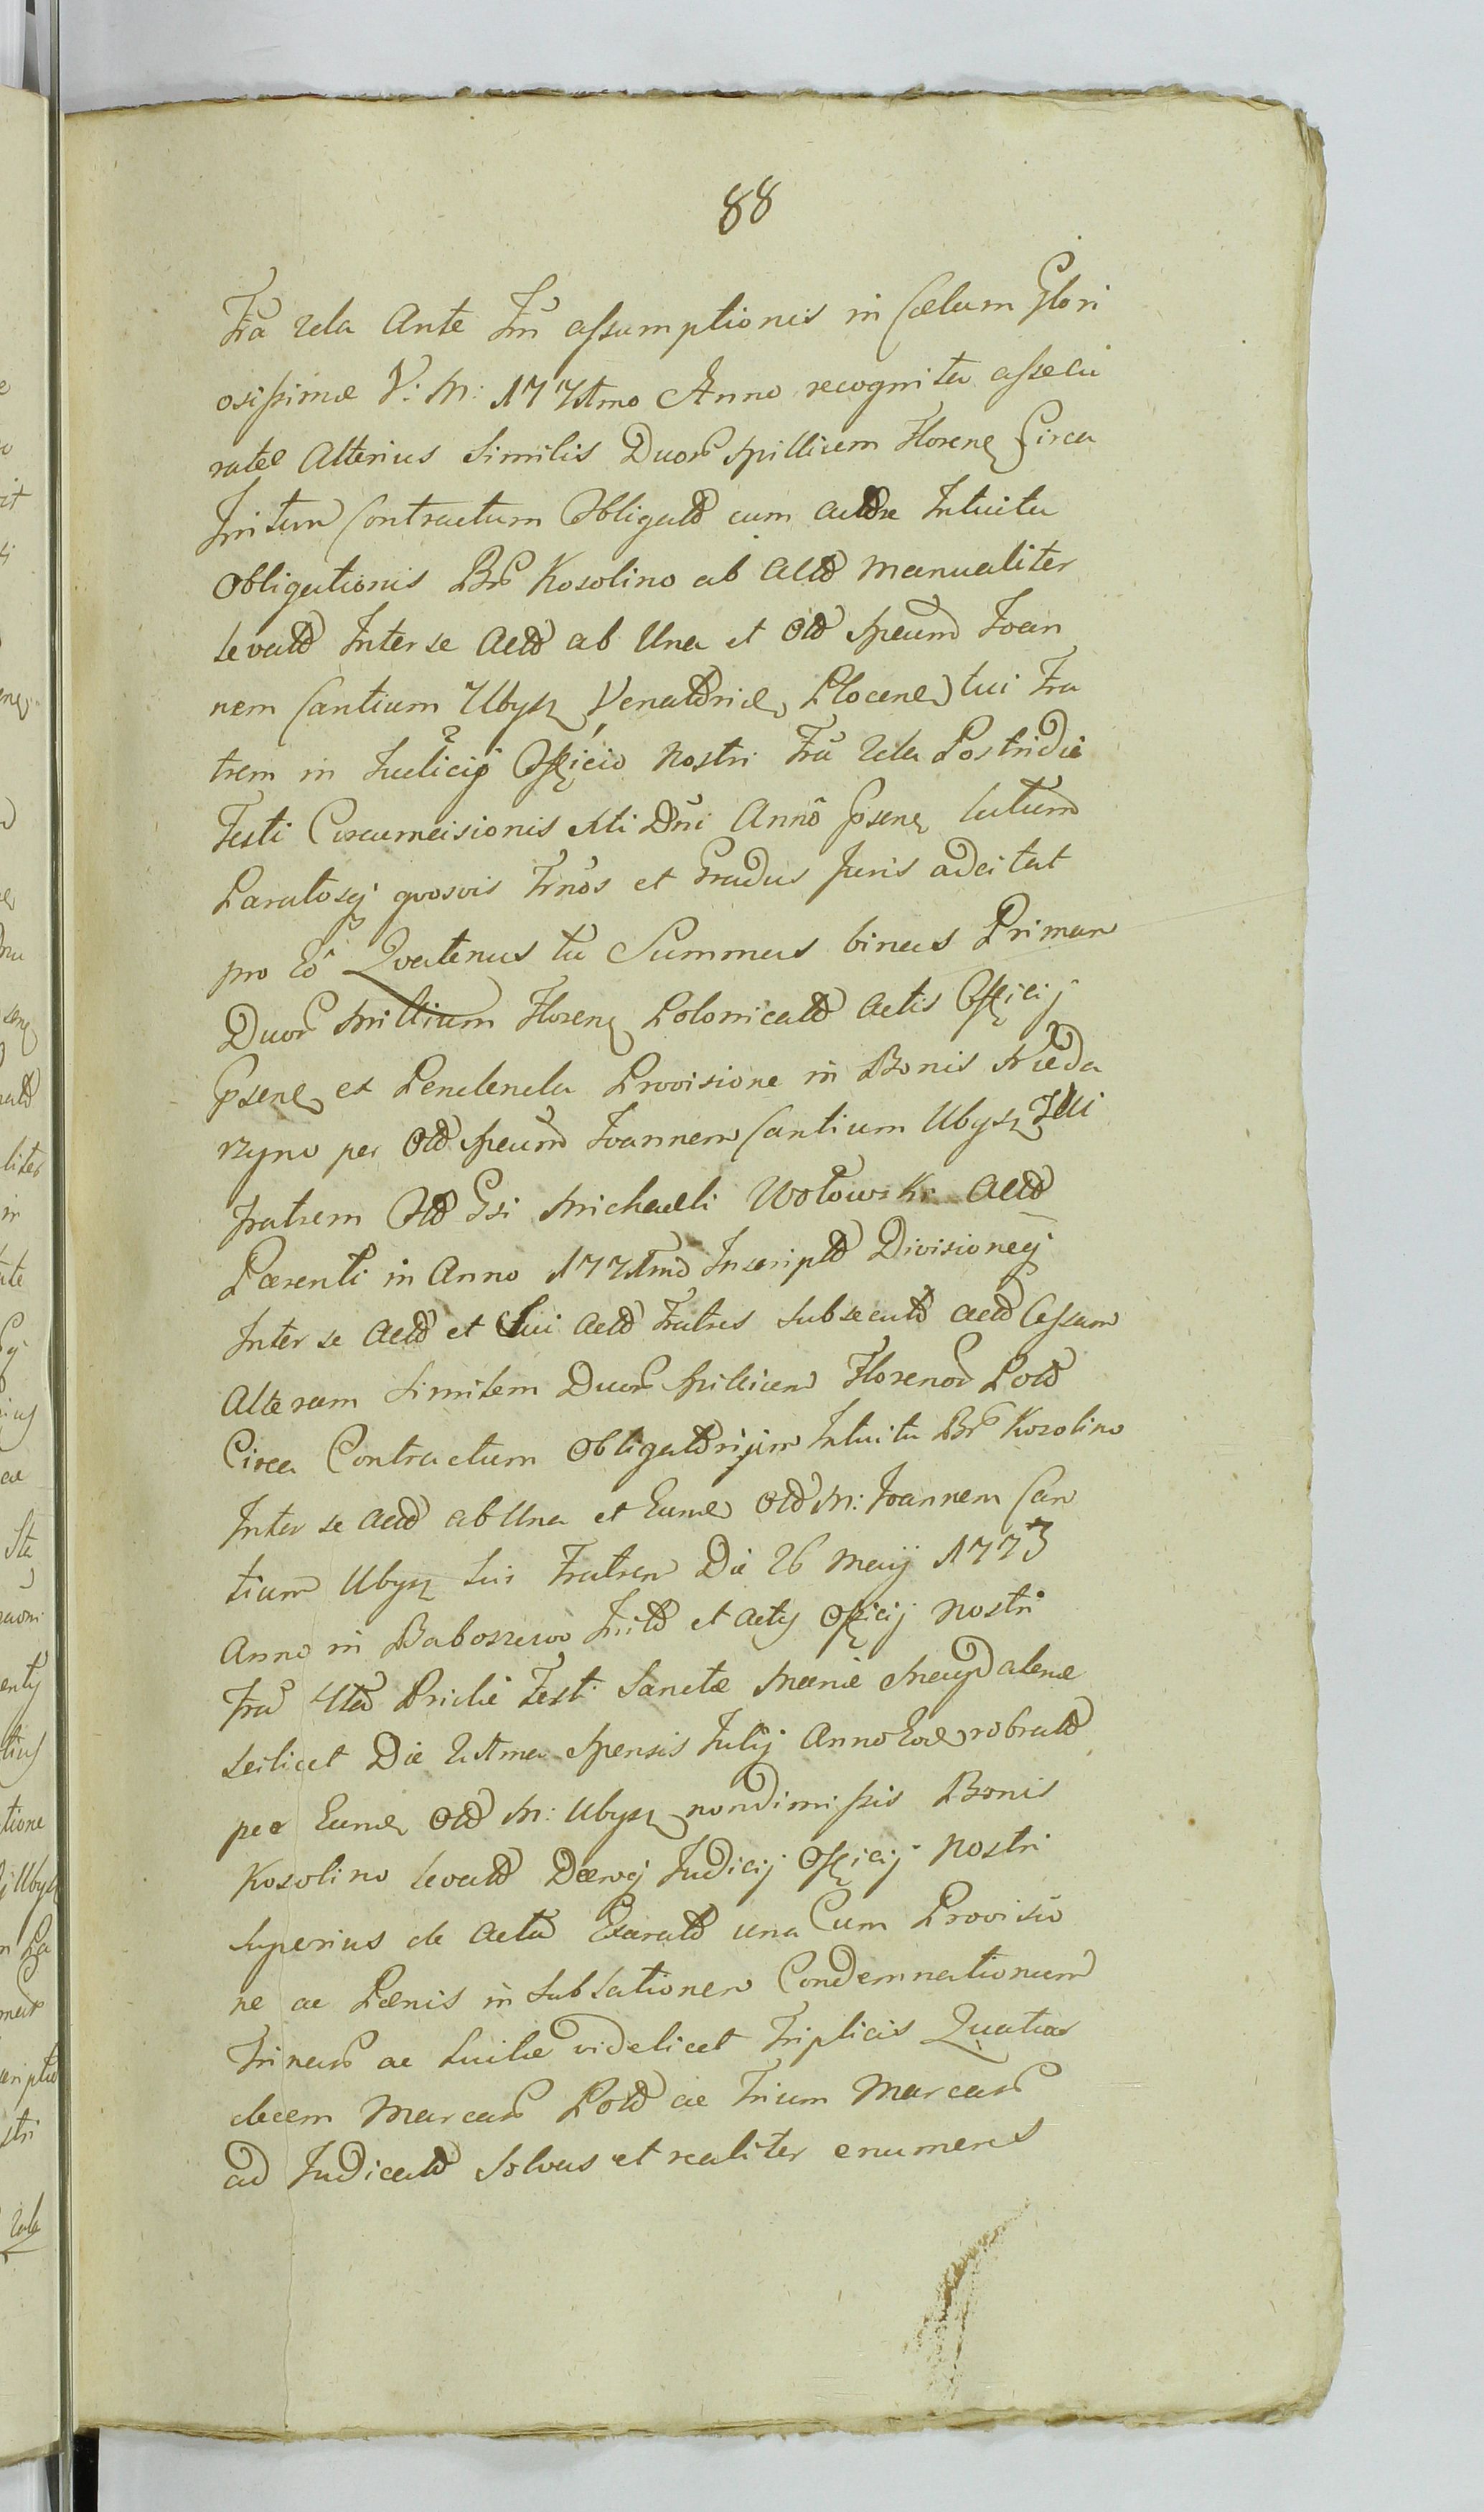 88
Fra 2da Ante Fm assumptionis in Caelum Glori
osissimae V: M: 1771mo Anno recognita assecu
ratae Alterius Similis Duor Millium Florenq Circa
Initum Contractum Obligatd cum Actore Intuitu
Obligationis Br Kozolino ab Actd Manualiter
levatd Inter se Actd ab Una et Old Mcum Joan
nem Cantium Ubysz Venatoriae Plocen tui Fra
trem in Judicij Officio Nostri Fra 2da Postridie
Festi Circumcisionis Xti Dni Anno Psenq latum
Paratosq quosvis Trnos et Gradus Juris adcitat
pro Eo Quatenus tu Summas binas Primam
Duor Millium Florenq Polonicald Actis Officij
Psenq et Pendenda Provisione in Bonis Nieda
rzyno per Old Mcum Joannem Cantium Ubysz Tui
fratrem Old Gsi Michaeli Wołowski Actd
Parenti in Anno 1771mo Inscriptd Divisioneq
Inter se Actd et Sui Actd Fratres subsecutd Actd Cessam
Alteram Similem Duor Millium Florenor Pold
Circa Contractum Obligatorium Intuitu Br Kozolino
Inter se Actd ab Una et Eund Old M: Joannem Can
tium Ubysz Sui Fratrem Die 26 Maij 1773
Anno in Baboszewo Initd et Actis Officij Nostri
Fra 4ta Pridie Festi Sanctae Mariae Magdalenae
scilicet Die 21ma Mensis Julij Anno Eod robratd
per Eund Old M: Ubysz non dimissis Bonis
Kozolino levatd Judicij Officij Nostri
Superius de Acta Exaratd una Cum Provisio
ne ac Paenis in Sublationem Condemnationum
Trinar ac Luitae videlicet Triplicis Quatuor
decem Marcar Pold ac Trium Marcar
ad Judicatd Solvas et realiter enumeres